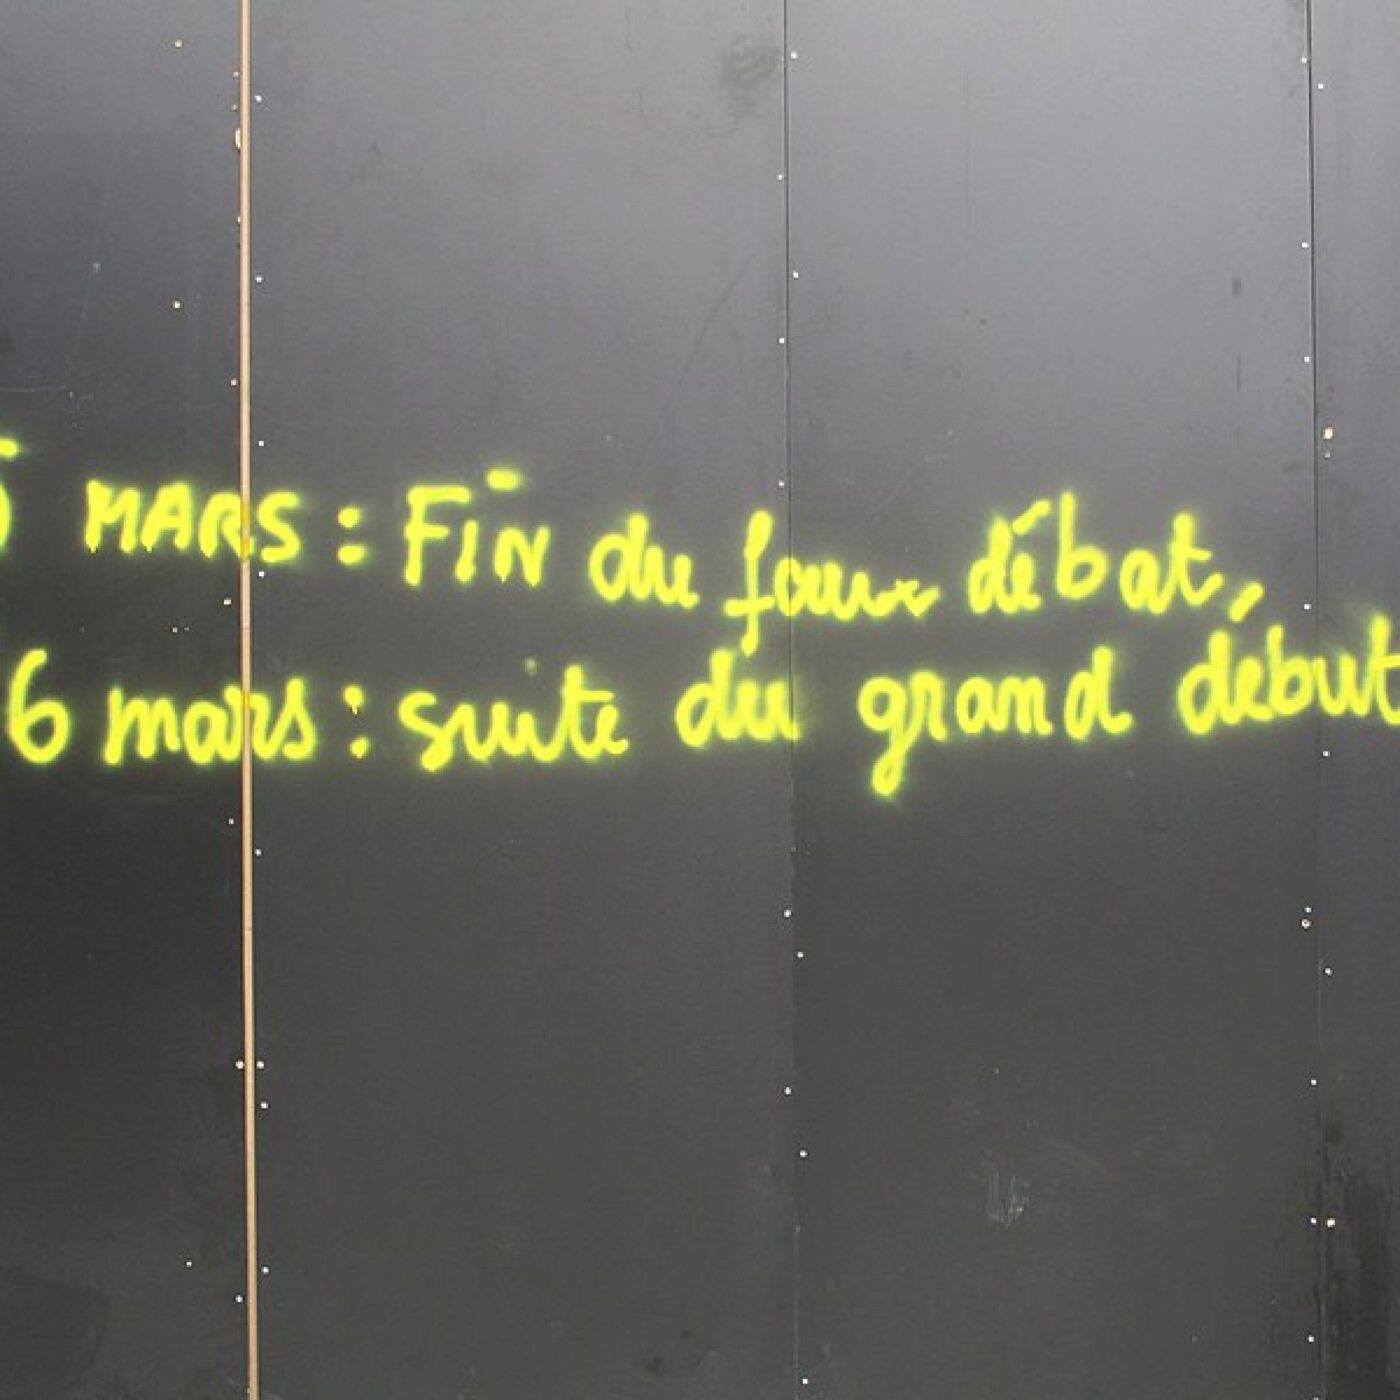 MARS : FiN du faux débat,
6 mars : suite du grand début